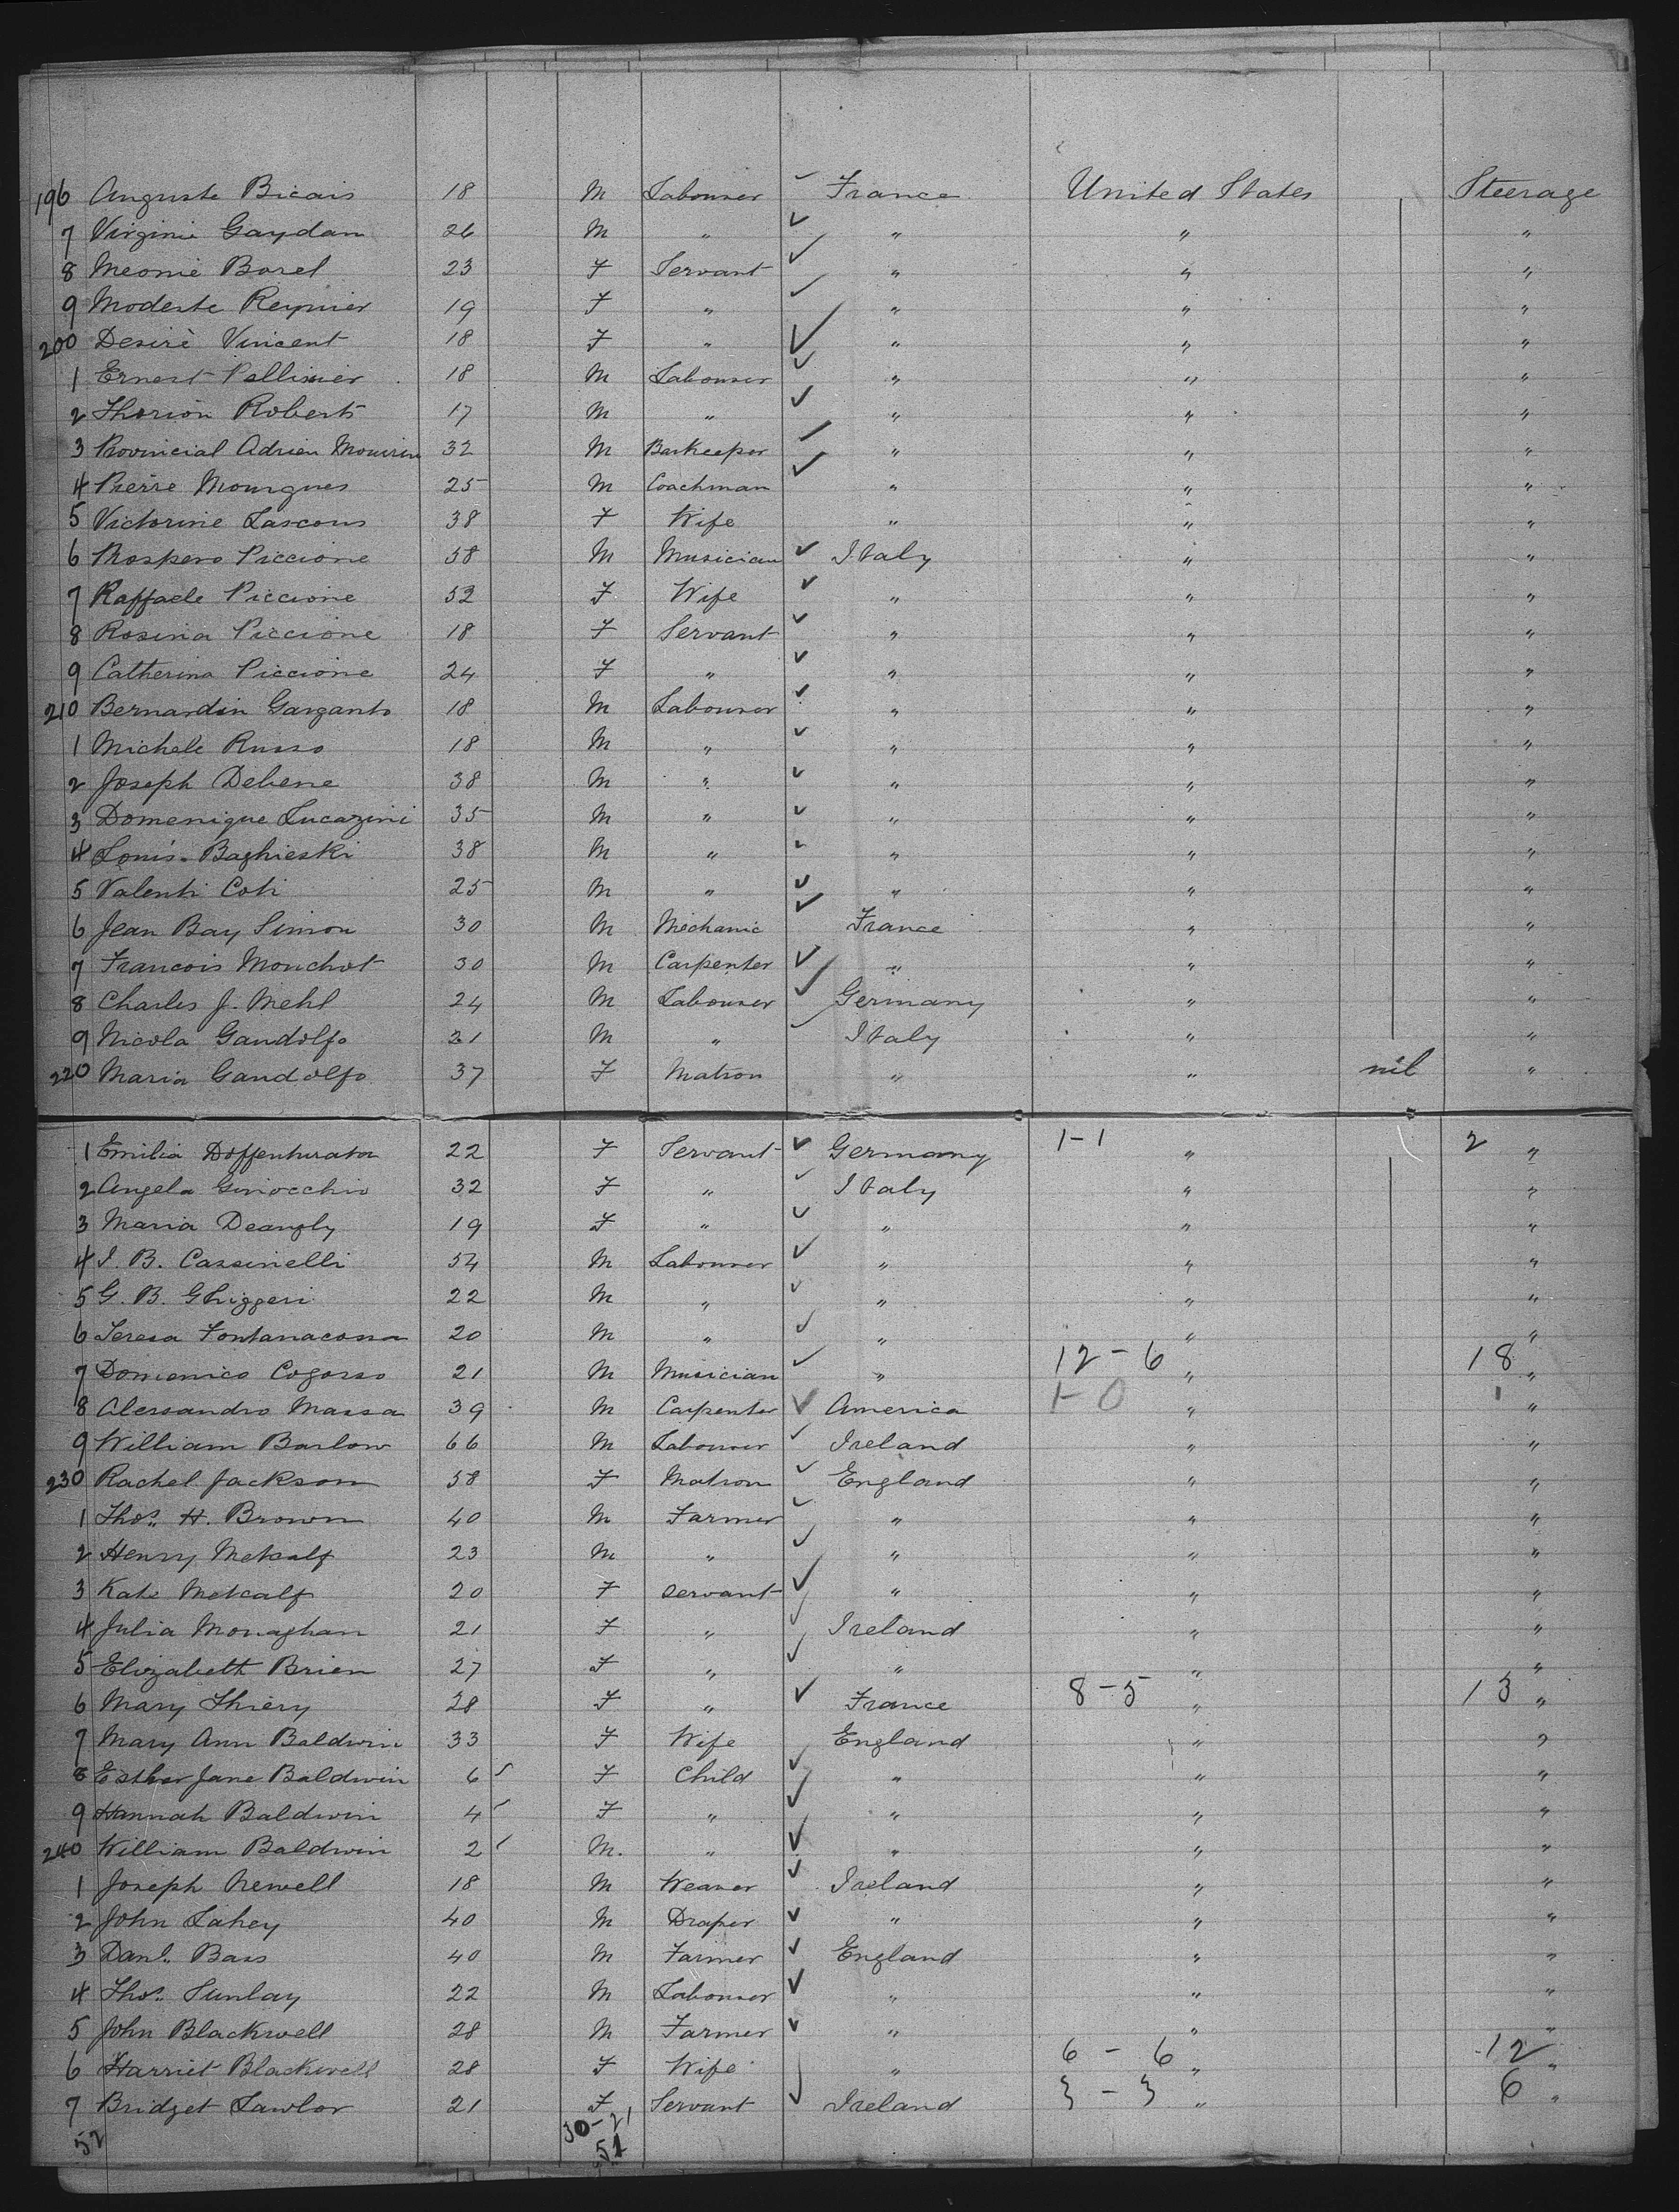 196 Auguste Bicais 18 M Labourer ✓ France United States Steerage
7 Virginie Gaydan 26 M " ✓ " " "
8 Meonie Borel 23 F Servant ✓ " " "
9 Modeste Reynier 19 F " ✓ " " "
200 Desirè Vincent 18 F " ✓ " " "
1 Ernest Pellissier 18 M Labourer ✓ " " "
2 Thorion Robert 17 M " ✓ " " "
3 Provincial Adrien 32 M Barkeeper ✓ " " "
4 Pierre Mourgues 25 M Coachman ✓ " " "
5 Victorine Lascous 38 F Wife " " "
6 Prospero Piccione 58 M Musician ✓ Italy " "
7 Raffaele Piccione 52 F Wife ✓ " " "
8 Rosina Piccione 18 F Servant ✓ " " "
9 Catherina Piccione 24 F " ✓ " " "
210 Bernardin Garganto 18 M Labourer ✓ " " "
1 Michele Russo 18 M " ✓ " " "
2 Joseph Debene 38 M " ✓ " " "
3 Domenique Lucazini 35 M " ✓ " " "
4 Louis Baghieski 38 M " ✓ " " "
5 Valenti Coti 25 M " ✓ " " "
6 Jean Bay Simon 30 M Mechanic ✓ France " "
7 Francois Mouchot 30 M Carpenter ✓ " " "
8 Charles J. Mehl 24 M Labourer ✓ Germany " "
9 Nicola Gandolfo 21 M " ✓ Italy " "
220 Maria Gandolfo 37 F Matron " " nil "
1 Emilia 22 F Servant ✓ Germany 1-1 " 2 "
2 Angela Ginocchio 32 F " ✓ Italy " "
3 Maria Deangly 19 F " ✓ " " "
4 I. B. Cassinelli 54 M Labourer ✓ " " "
5 G. B. Ghiggeri 22 M " ✓ " " "
6 Teresa Fontanacossa 20 M " ✓ " " "
7 Domenico Cogorso 21 M Musician ✓ " 12-6 " 18 "
8 Alessandro Massa 39 M Carpenter ✓ America 1-0 " 1 "
9 William Barlow 66 M Labourer ✓ Ireland " "
230 Rachel Jackson 58 F Matron ✓ England " "
1 Thos. H. Brown 40 M Farmer ✓ " " "
2 Henry Metcalf 23 M " ✓ " " "
3 Kate Metcalf 20 F Servant ✓ " " "
4 Julia Monaghan 21 F " ✓ Ireland " "
5 Elizabeth Brien 27 F " ✓ " " "
6 Mary Thiery 28 F " ✓ France 8-5 " 13 "
7 Mary Ann Baldwin 33 F Wife England " "
8 Esther Jane Baldwin 6 F Child ✓ " " "
9 Hannah Baldwin 4 F " ✓ " " "
240 William Baldwin 2 M. " ✓ " " "
1 Joseph Newell 18 M Weaver ✓ Ireland " "
2 John Lahey 40 M Draper ✓ " " "
3 Danl. Bass 40 M Farmer ✓ England " "
4 Thos. Sunlay 22 M Labourer ✓ " " "
5 John Blackwell 28 M Farmer ✓ " " "
6 Harriet Blackwell 28 F Wife " 6-6 " 12 "
7 Bridget Lawlor 21 F Servant ✓ Ireland 3-3 " 6 "
52 30-21
51